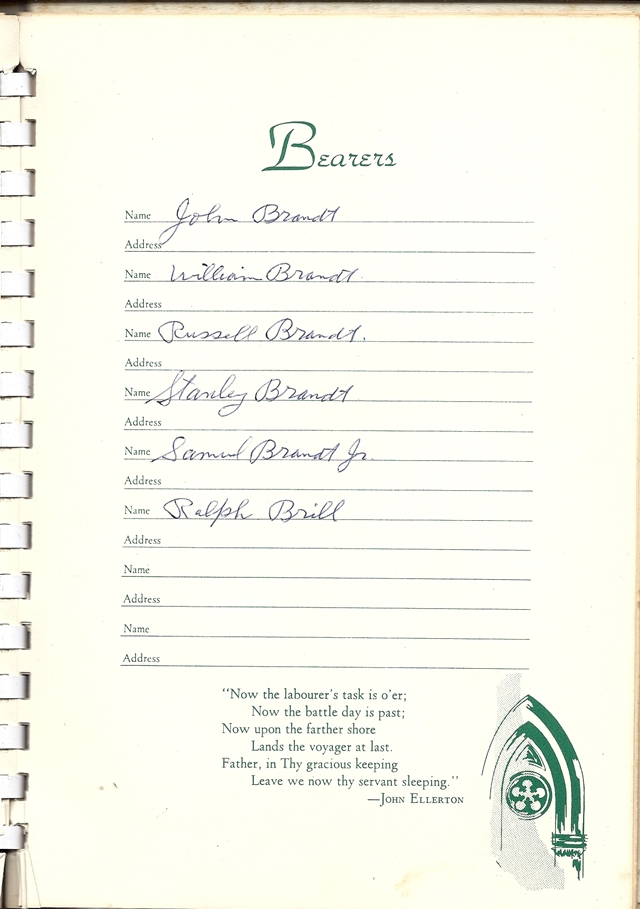 Bearers
Name John Brandt
Address
Name William Brandt
Address
Name Russell Brandt.
Address
Name Stanley Brandt
Address
Name Samuel Brandt Jr.
Address
Name Ralph Brill
Address
Name
Address
Name
Address
"Now the labourer's task is o'er;
Now the battle day is past;
Now upon the farther shore
Lands the voyager at last.
Father, in Thy gracious keeping
Leave we now thy servant sleeping."
—John Ellerton